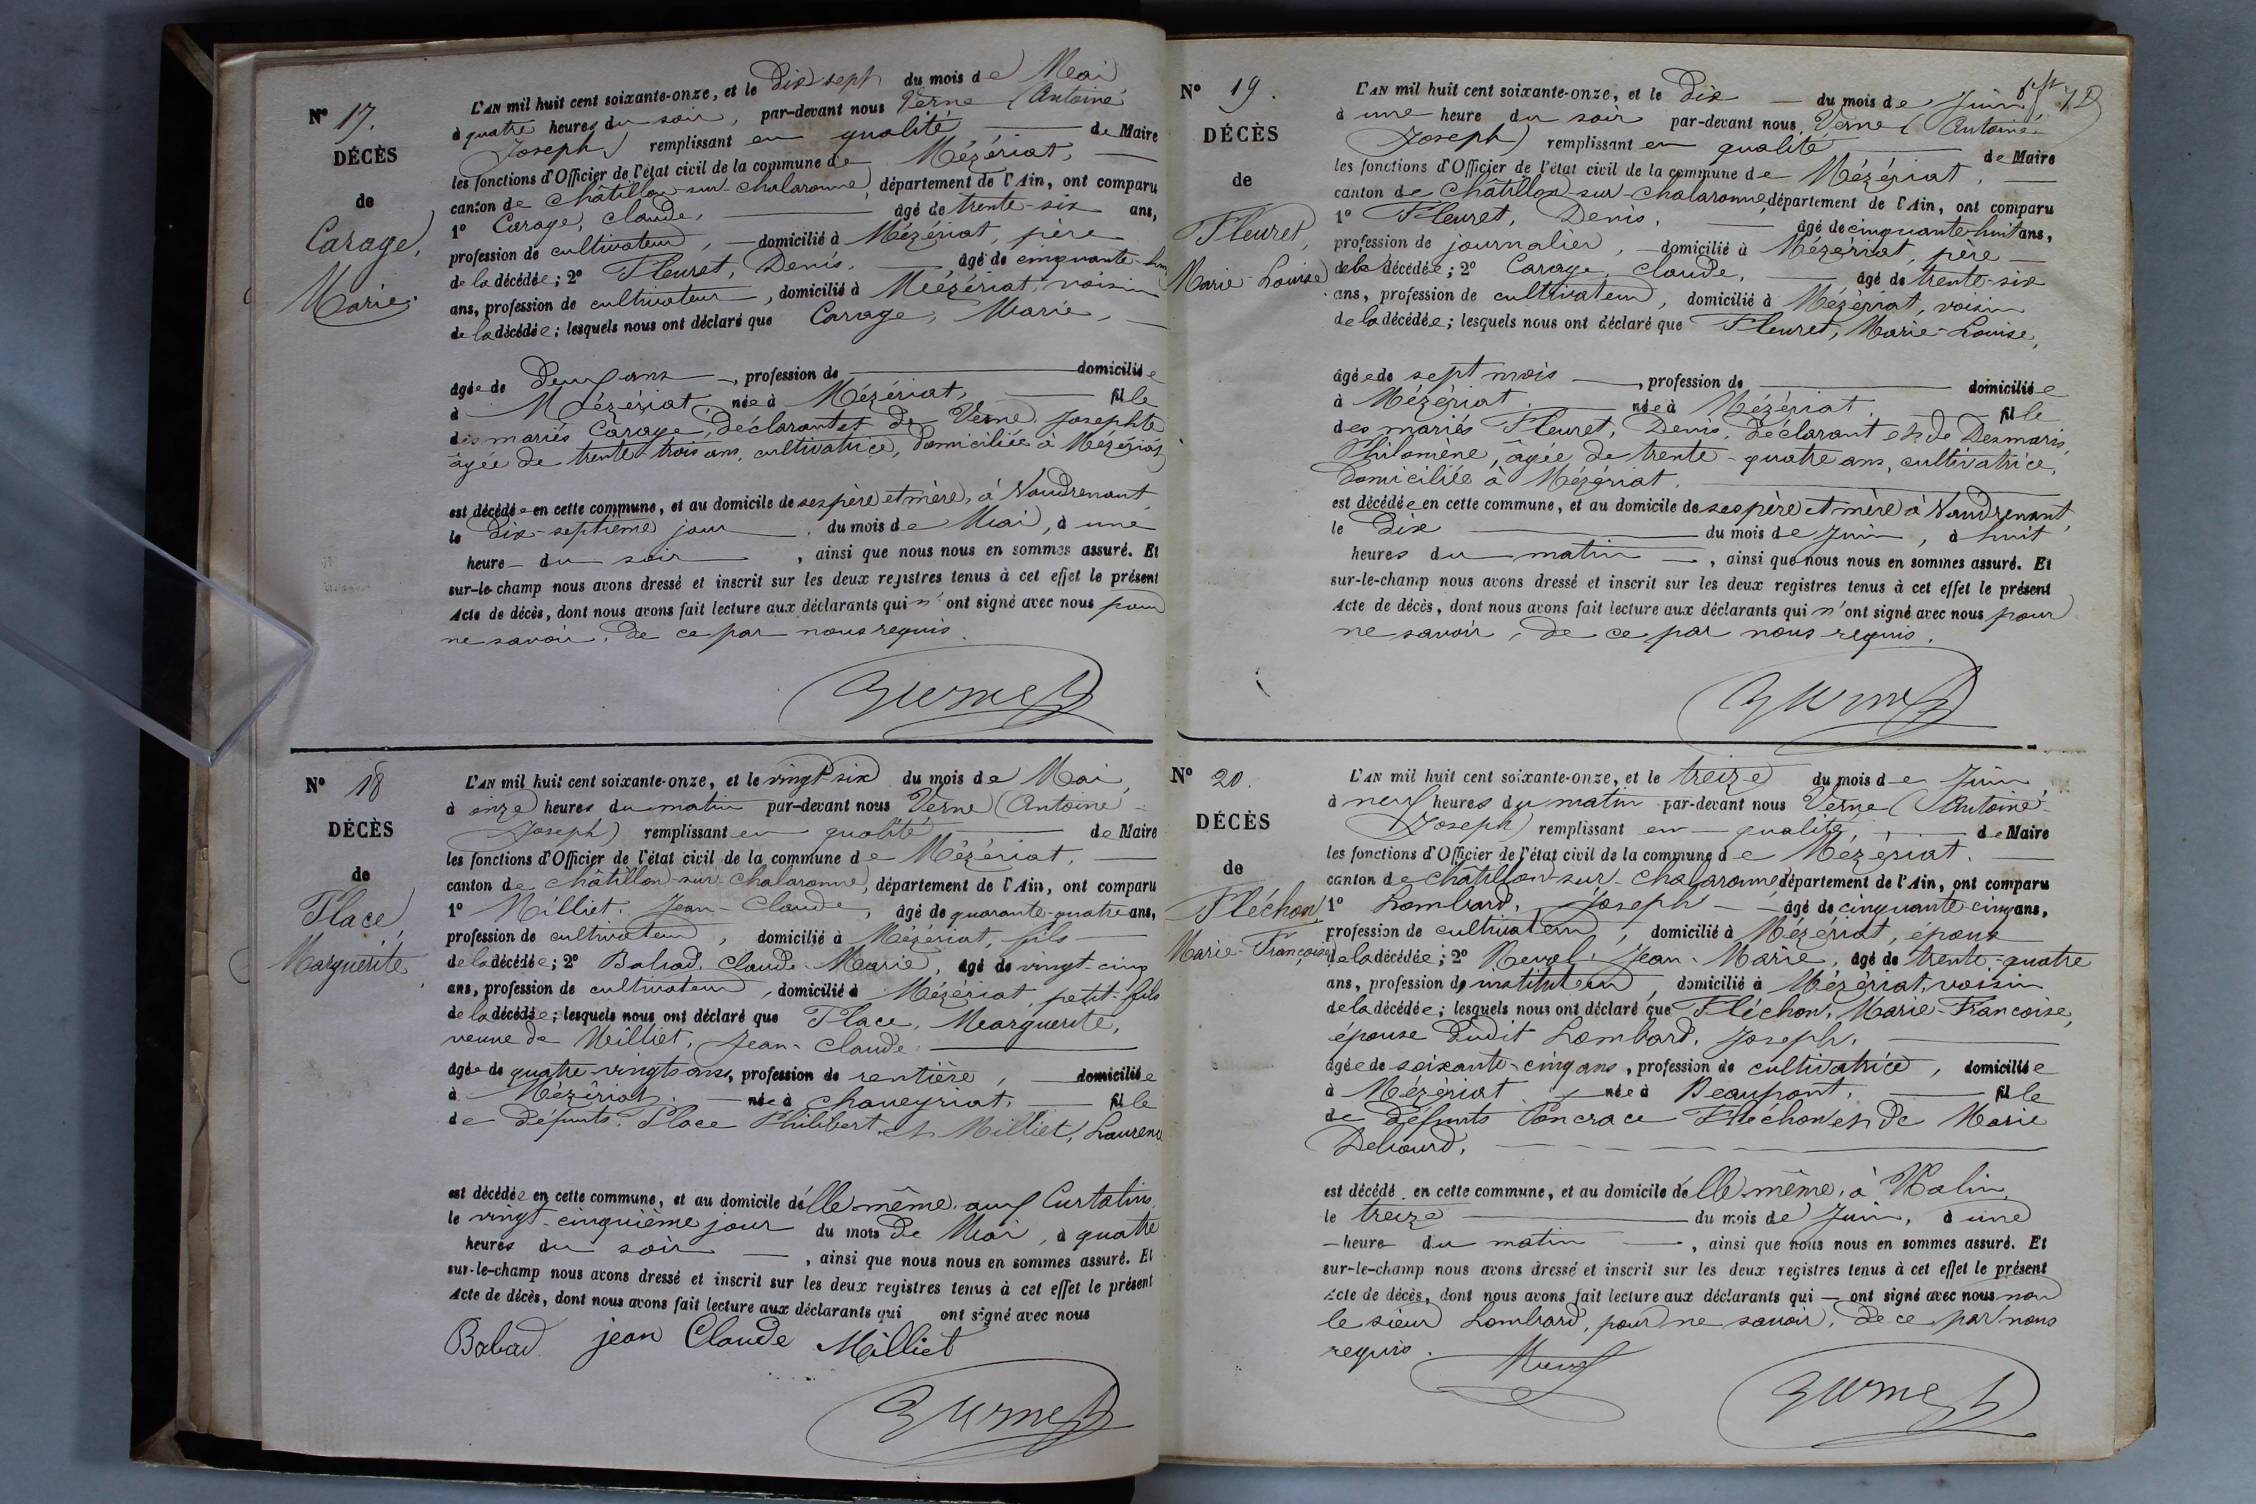 N° 17.
DÉCÈS
de
Carage,
Marie.
L'AN mil huit cent soixante-onze, et le Dix sept du mois de Mai
à quatre heures du soir, par-devant nous Verne (Antoine
Joseph) remplissant en qualité de Maire
les fonctions d'Officier de l'état civil de la commune de Mézériat,
canton de Châtillon-sur-Chalaronne, département de l'Ain, ont comparu
1° Carage, Claude, âgé de trente-six ans,
profession de cultivateur, domicilié à Mézériat, père
de la décédée; 2° Fleuret, Denis, âgé de cinquante-
ans, profession de cultivateur, domicilié à Mézériat, voisin
de la décédée; lesquels nous ont déclaré que Carage, Marie,
âgée de Deux ans, profession de domiciliée
à Mézériat, née à Mézériat, fille
des mariés Carage, déclarant et de Verne Josephte
âgée de trente-trois ans, cultivatrice, domiciliée à Mézériat
est décédée en cette commune, et au domicile de ses père et mère, à Vaudrenant
le Dix-septième jour du mois de Mai, à une
heure du soir, ainsi que nous nous en sommes assuré. Et
sur-le-champ nous avons dressé et inscrit sur les deux registres tenus à cet effet le présent
Acte de décès, dont nous avons fait lecture aux déclarants qui n'ont signé avec nous pour
ne savoir, de ce par nous requis.
Verne
N° 18
DÉCÈS
de
Place,
Marguerite
L'AN mil huit cent soixante-onze, et le vingt-six du mois de Mai,
à onze heures du matin par-devant nous Verne (Antoine-
Joseph) remplissant en qualité de Maire
les fonctions d'Officier de l'état civil de la commune de Mézériat,
canton de Châtillon-sur-Chalaronne, département de l'Ain, ont comparu
1° Milliet, Jean-Claude, âgé de quarante-quatre ans,
profession de cultivateur, domicilié à Mézériat, fils
de la décédée; 2° Babad, Claude-Marie, âgé de vingt-cinq
ans, profession de cultivateur, domicilié à Mézériat, petit-fils
de la décédée; lesquels nous ont déclaré que Place, Marguerite,
veuve de Milliet, Jean-Claude
âgée de quatre-vingts ans, profession de rentière, domiciliée
à Mézériat, née à Chaveyriat, fille
de défunts Place Philibert et Milliet, Laurence
est décédée en cette commune, et au domicile d'elle même, aux Curtatins
le vingt-cinquième jour du mois de Mai, à quatre
heures du soir, ainsi que nous nous en sommes assuré. Et
sur-le-champ nous avons dressé et inscrit sur les deux registres tenus à cet effet le présent
Acte de décès, dont nous avons fait lecture aux déclarants qui ont signé avec nous
Babad jean Claude Milliet
Verne
N° 19.
DÉCÈS
de
Fleuret,
Marie-Louise
L'AN mil huit cent soixante-onze, et le Dix du mois de Juin,
à une heure du soir par-devant nous Verne (Antoine-
Joseph) remplissant en qualité de Maire
les fonctions d'Officier de l'état civil de la commune de Mézériat,
canton de Châtillon-sur-Chalaronne, département de l'Ain, ont comparu
1° Fleuret, Denis, âgé de cinquante-huit ans,
profession de journalier, domicilié à Mézériat, père
de la décédée; 2° Carage, Claude, âgé de trente-six
ans, profession de cultivateur, domicilié à Mézériat, voisin
de la décédée; lesquels nous ont déclaré que Fleuret, Marie-Louise,
âgée de sept mois, profession de domiciliée
à Mézériat, née à Mézériat, fille
des mariés Fleuret, Denis, déclarant et de Desmaris,
Philomène, âgée de trente-quatre ans, cultivatrice,
domiciliée à Mézériat.
est décédée en cette commune, et au domicile de ses père et mère à Vaudrenant,
le Dix du mois de Juin, à huit
heures du matin, ainsi que nous nous en sommes assuré. Et
sur-le-champ nous avons dressé et inscrit sur les deux registres tenus à cet effet le présent
Acte de décès, dont nous avons fait lecture aux déclarants qui n'ont signé avec nous pour
ne savoir, de ce par nous requis.
Verne
N° 20.
DÉCÈS
de
Fléchon,
Marie-Françoise
L'AN mil huit cent soixante-onze, et le treize du mois de Juin,
à neuf heures du matin par-devant nous Verne (Antoine-
Joseph) remplissant en qualité, de Maire
les fonctions d'Officier de l'état civil de la commune de Mézériat,
canton de Châtillon-sur-Chalaronne, département de l'Ain, ont comparu
1° Lombard, Joseph âgé de cinquante-cinq ans,
profession de cultivateur, domicilié à Mézériat, époux
de la décédée; 2° Revel, Jean-Marie, âgé de trente-quatre
ans, profession d'instituteur, domicilié à Mézériat, voisin
de la décédée; lesquels nous ont déclaré que Fléchon, Marie-Françoise,
épouse dudit Lombard, Joseph,
âgée de soixante-cinq ans, profession de cultivatrice, domiciliée
à Mézériat, née à Beaupont, fille
de défunts Pancrace Fléchon et de Marie
Debourd,
est décédé en cette commune, et au domicile d'elle même, à Malin,
le treize du mois de Juin, à une
heure du matin, ainsi que nous nous en sommes assuré. Et
sur-le-champ nous avons dressé et inscrit sur les deux registres tenus à cet effet le présent
Acte de décès, dont nous avons fait lecture aux déclarants qui ont signé avec nous non
le sieur Lombard, pour ne savoir, de ce par nous
requis.
Revel
Verne